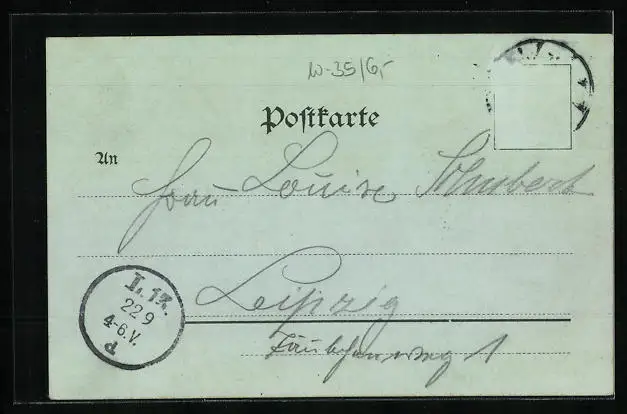 w-35/6,-
Postkarte
An
Frau Louise Schubert
Leipzig
1
L. 13.
22 9
4-6.V.
P